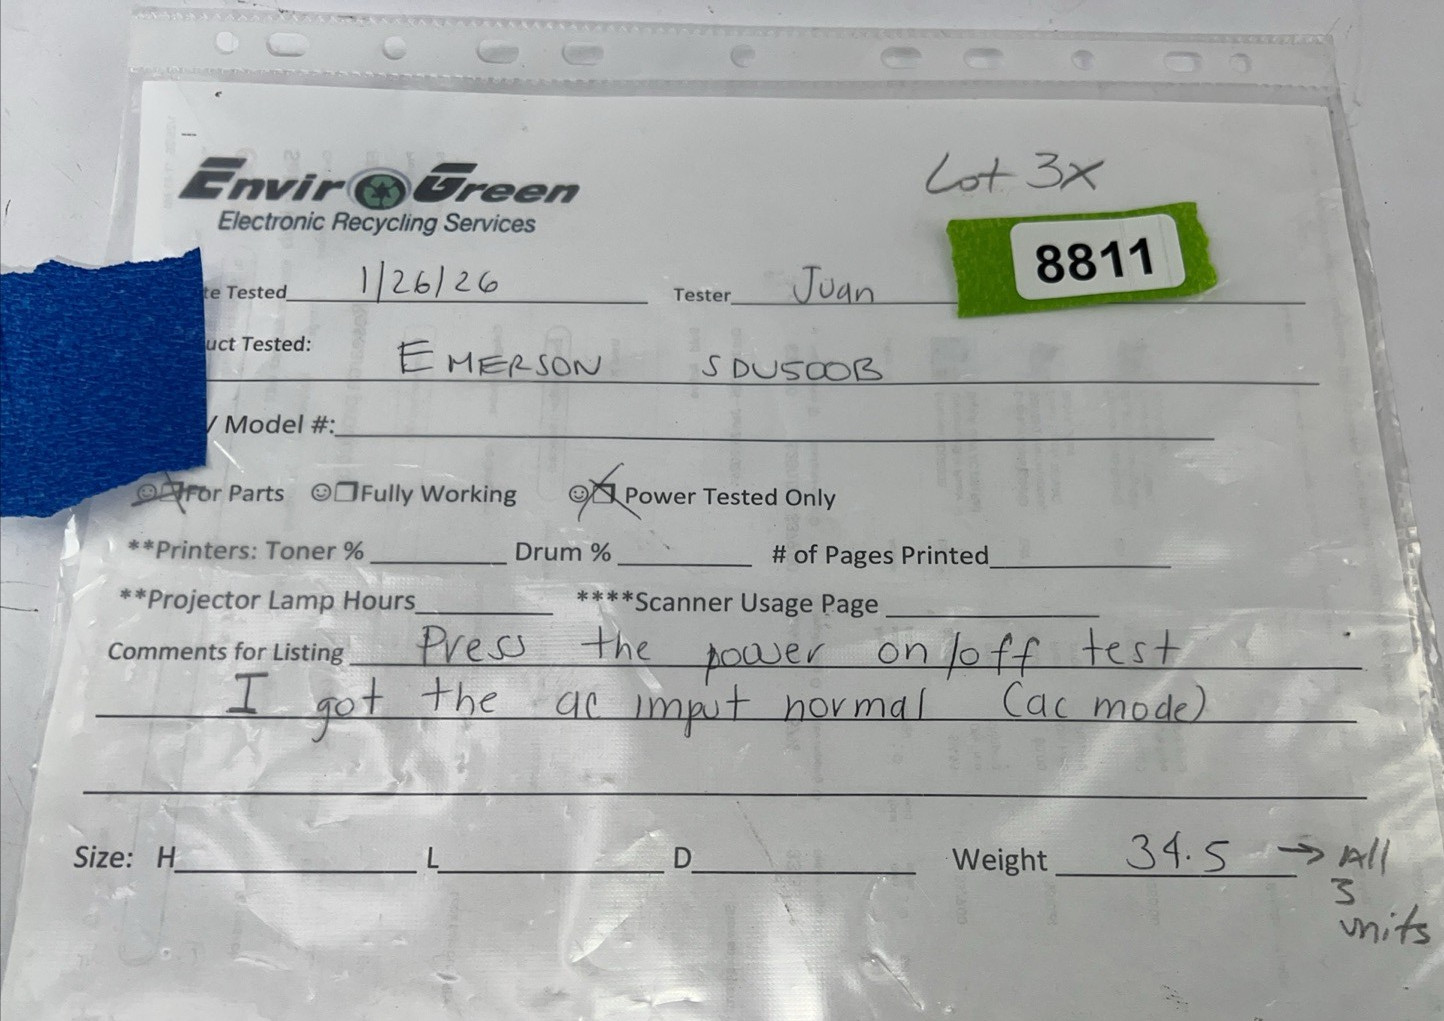 Lot 3x
EnviroGreen
Electronic Recycling Services
8811
te Tested 1/26/26 Tester Juan
uct Tested: EMERSON SDU500B
/ Model #:
For Parts Fully Working Power Tested Only
**Printers: Toner % Drum % # of Pages Printed
**Projector Lamp Hours ****Scanner Usage Page
Comments for Listing Press the power on/off test
I got the ac imput normal (ac mode)
Size: H L D Weight 34.5 → All
3
units